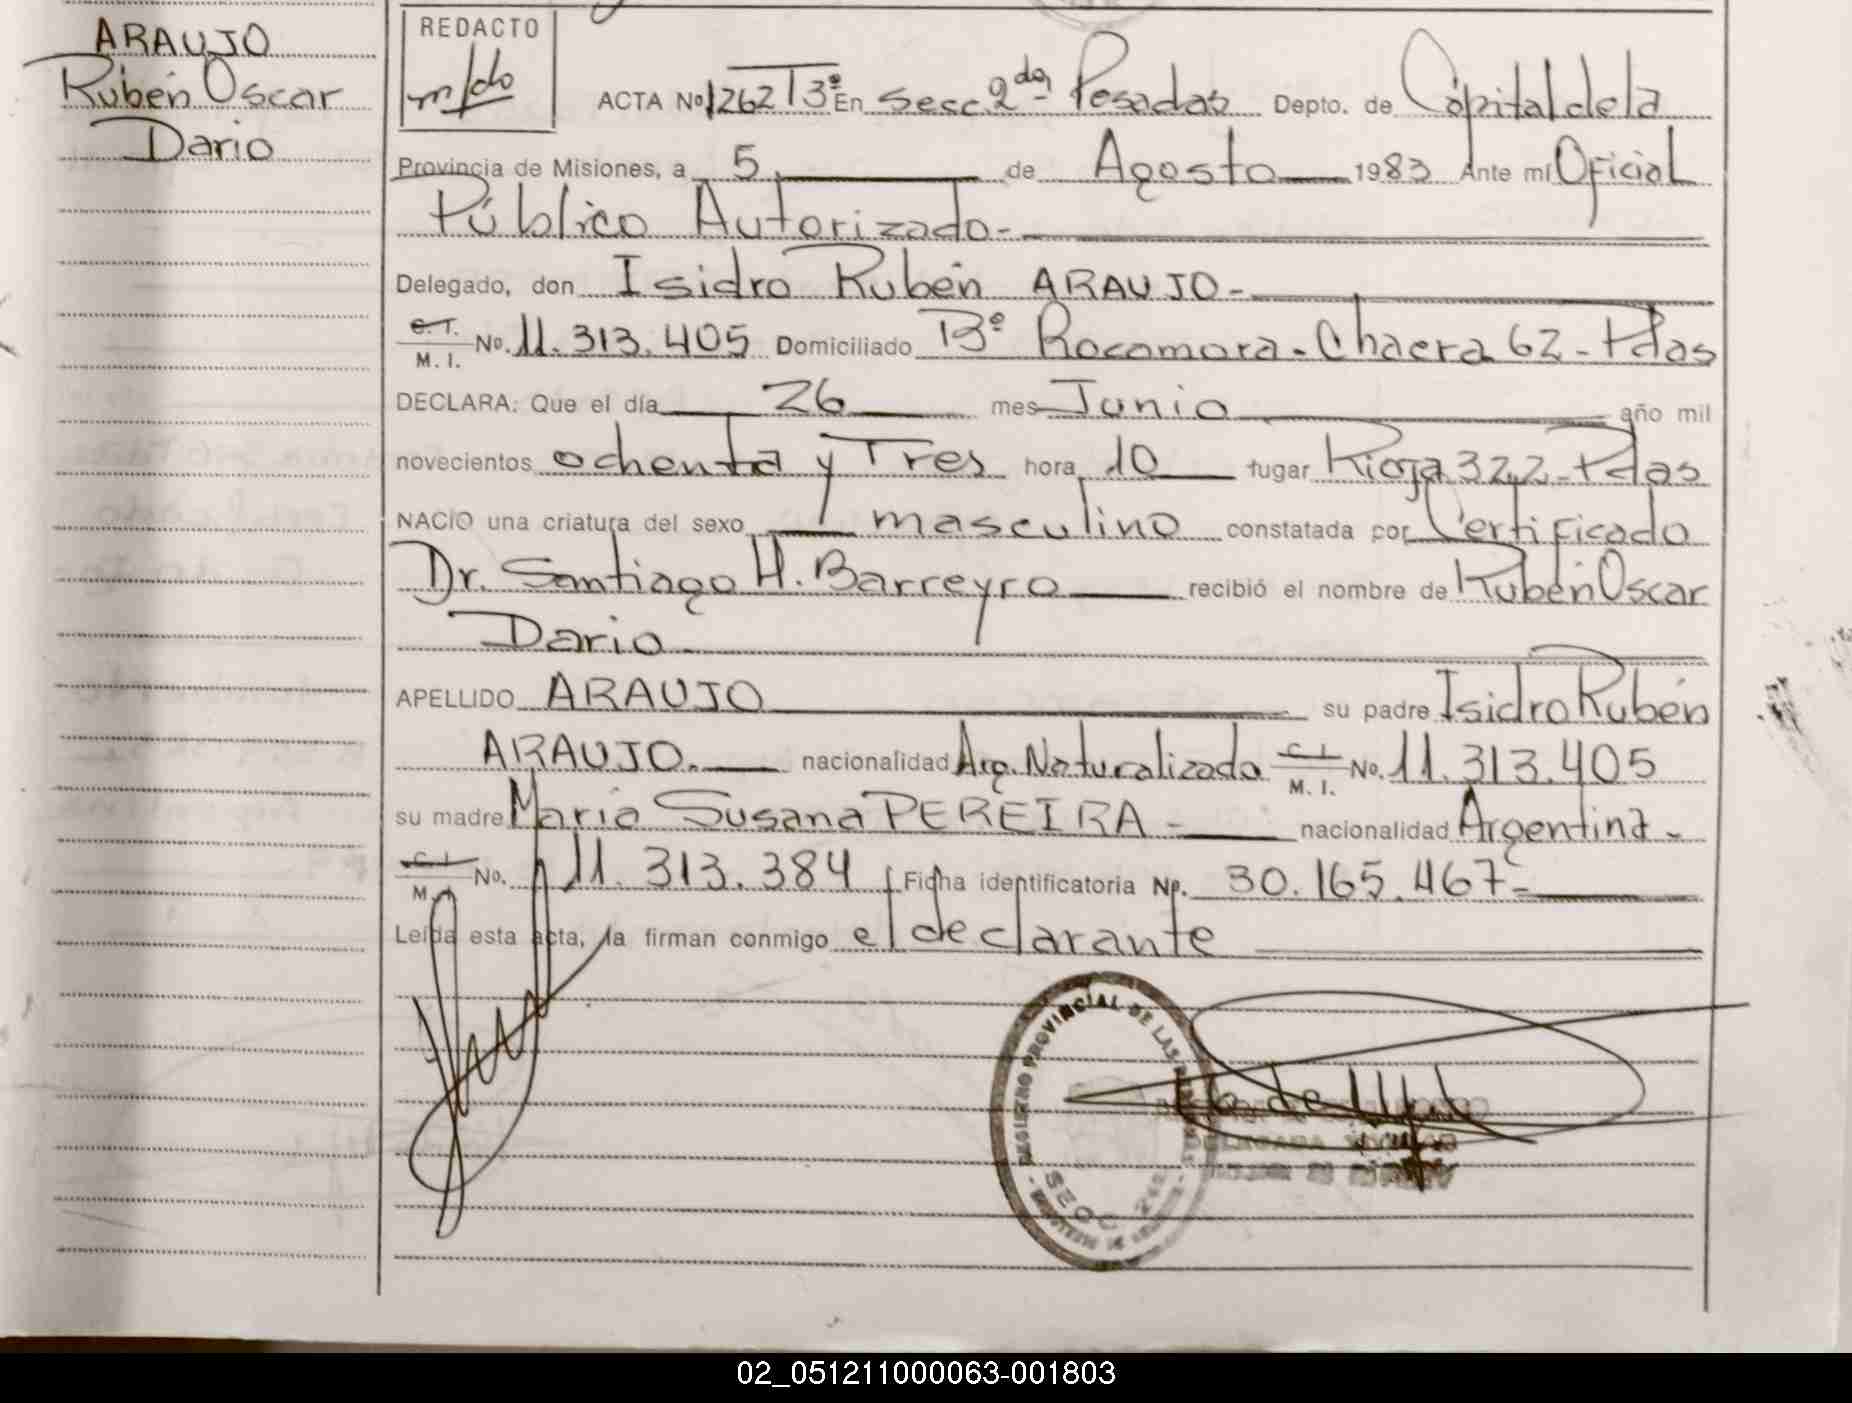 ARAUJO
Rubén Oscar
Dario
REDACTO
m/do
ACTA Nº 1262 T3º En Secc. 2da Posadas Depto. de Cápital de la
Provincia de Misiones, a 5 de Agosto 1983 Ante mí Oficial
Público Autorizado.-
Delegado, don Isidro Rubén ARAUJO-
C.I. M. I. No. 11.313.405 Domiciliado Bº Rocamora - Chacra 62 - Pdas
DECLARA: Que el día 26 mes Junio año mil
novecientos ochenta y Tres hora 10 lugar Rioja 322 - Pdas
NACIO una criatura del sexo masculino constatada por Certificado
Dr. Santiago H. Barreyro recibió el nombre de Rubén Oscar
Dario.
APELLIDO ARAUJO su padre Isidro Rubén
ARAUJO. nacionalidad Arg. Naturalizado C.I. M. I. No. 11.313.405
su madre María Susana PEREIRA - nacionalidad Argentina -
C.I. M. I. No. 11.313.384 Ficha identificatoria No. 30.165.467-
Leída esta acta, la firman conmigo el declarante
REGISTRO PROVINCIAL DE LAS
SECC 2da
02_051211000063-001803